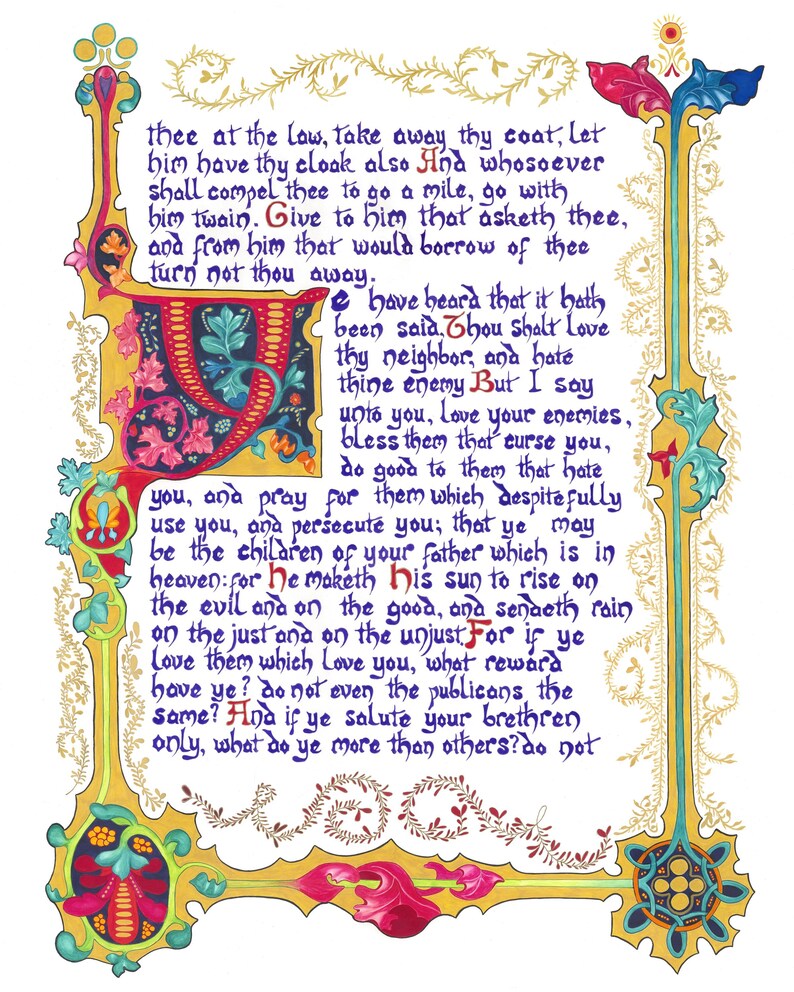 thee at the law, take away thy coat, let
him have thy cloak also And whosoever
shall compel thee to go a mile, go with
him twain. Give to him that asketh thee,
and from him that would borrow of thee
turn not thou away.
Ye have heard that it hath
been said. Thou Shalt love
thy neighbor, and hate
thine enemy But I say
unto you, love your enemies,
bless them that curse you,
do good to them that hate
you, and pray for them which despitefully
use you, and persecute you; that ye may
be the children of your father which is in
heaven: for he maketh his sun to rise on
the evil and on the good, and sendeth rain
on the just and on the unjust. For if ye
love them which love you, what reward
have ye? do not even the publicans the
same? And if ye salute your brethren
only, what do ye more than others? do not